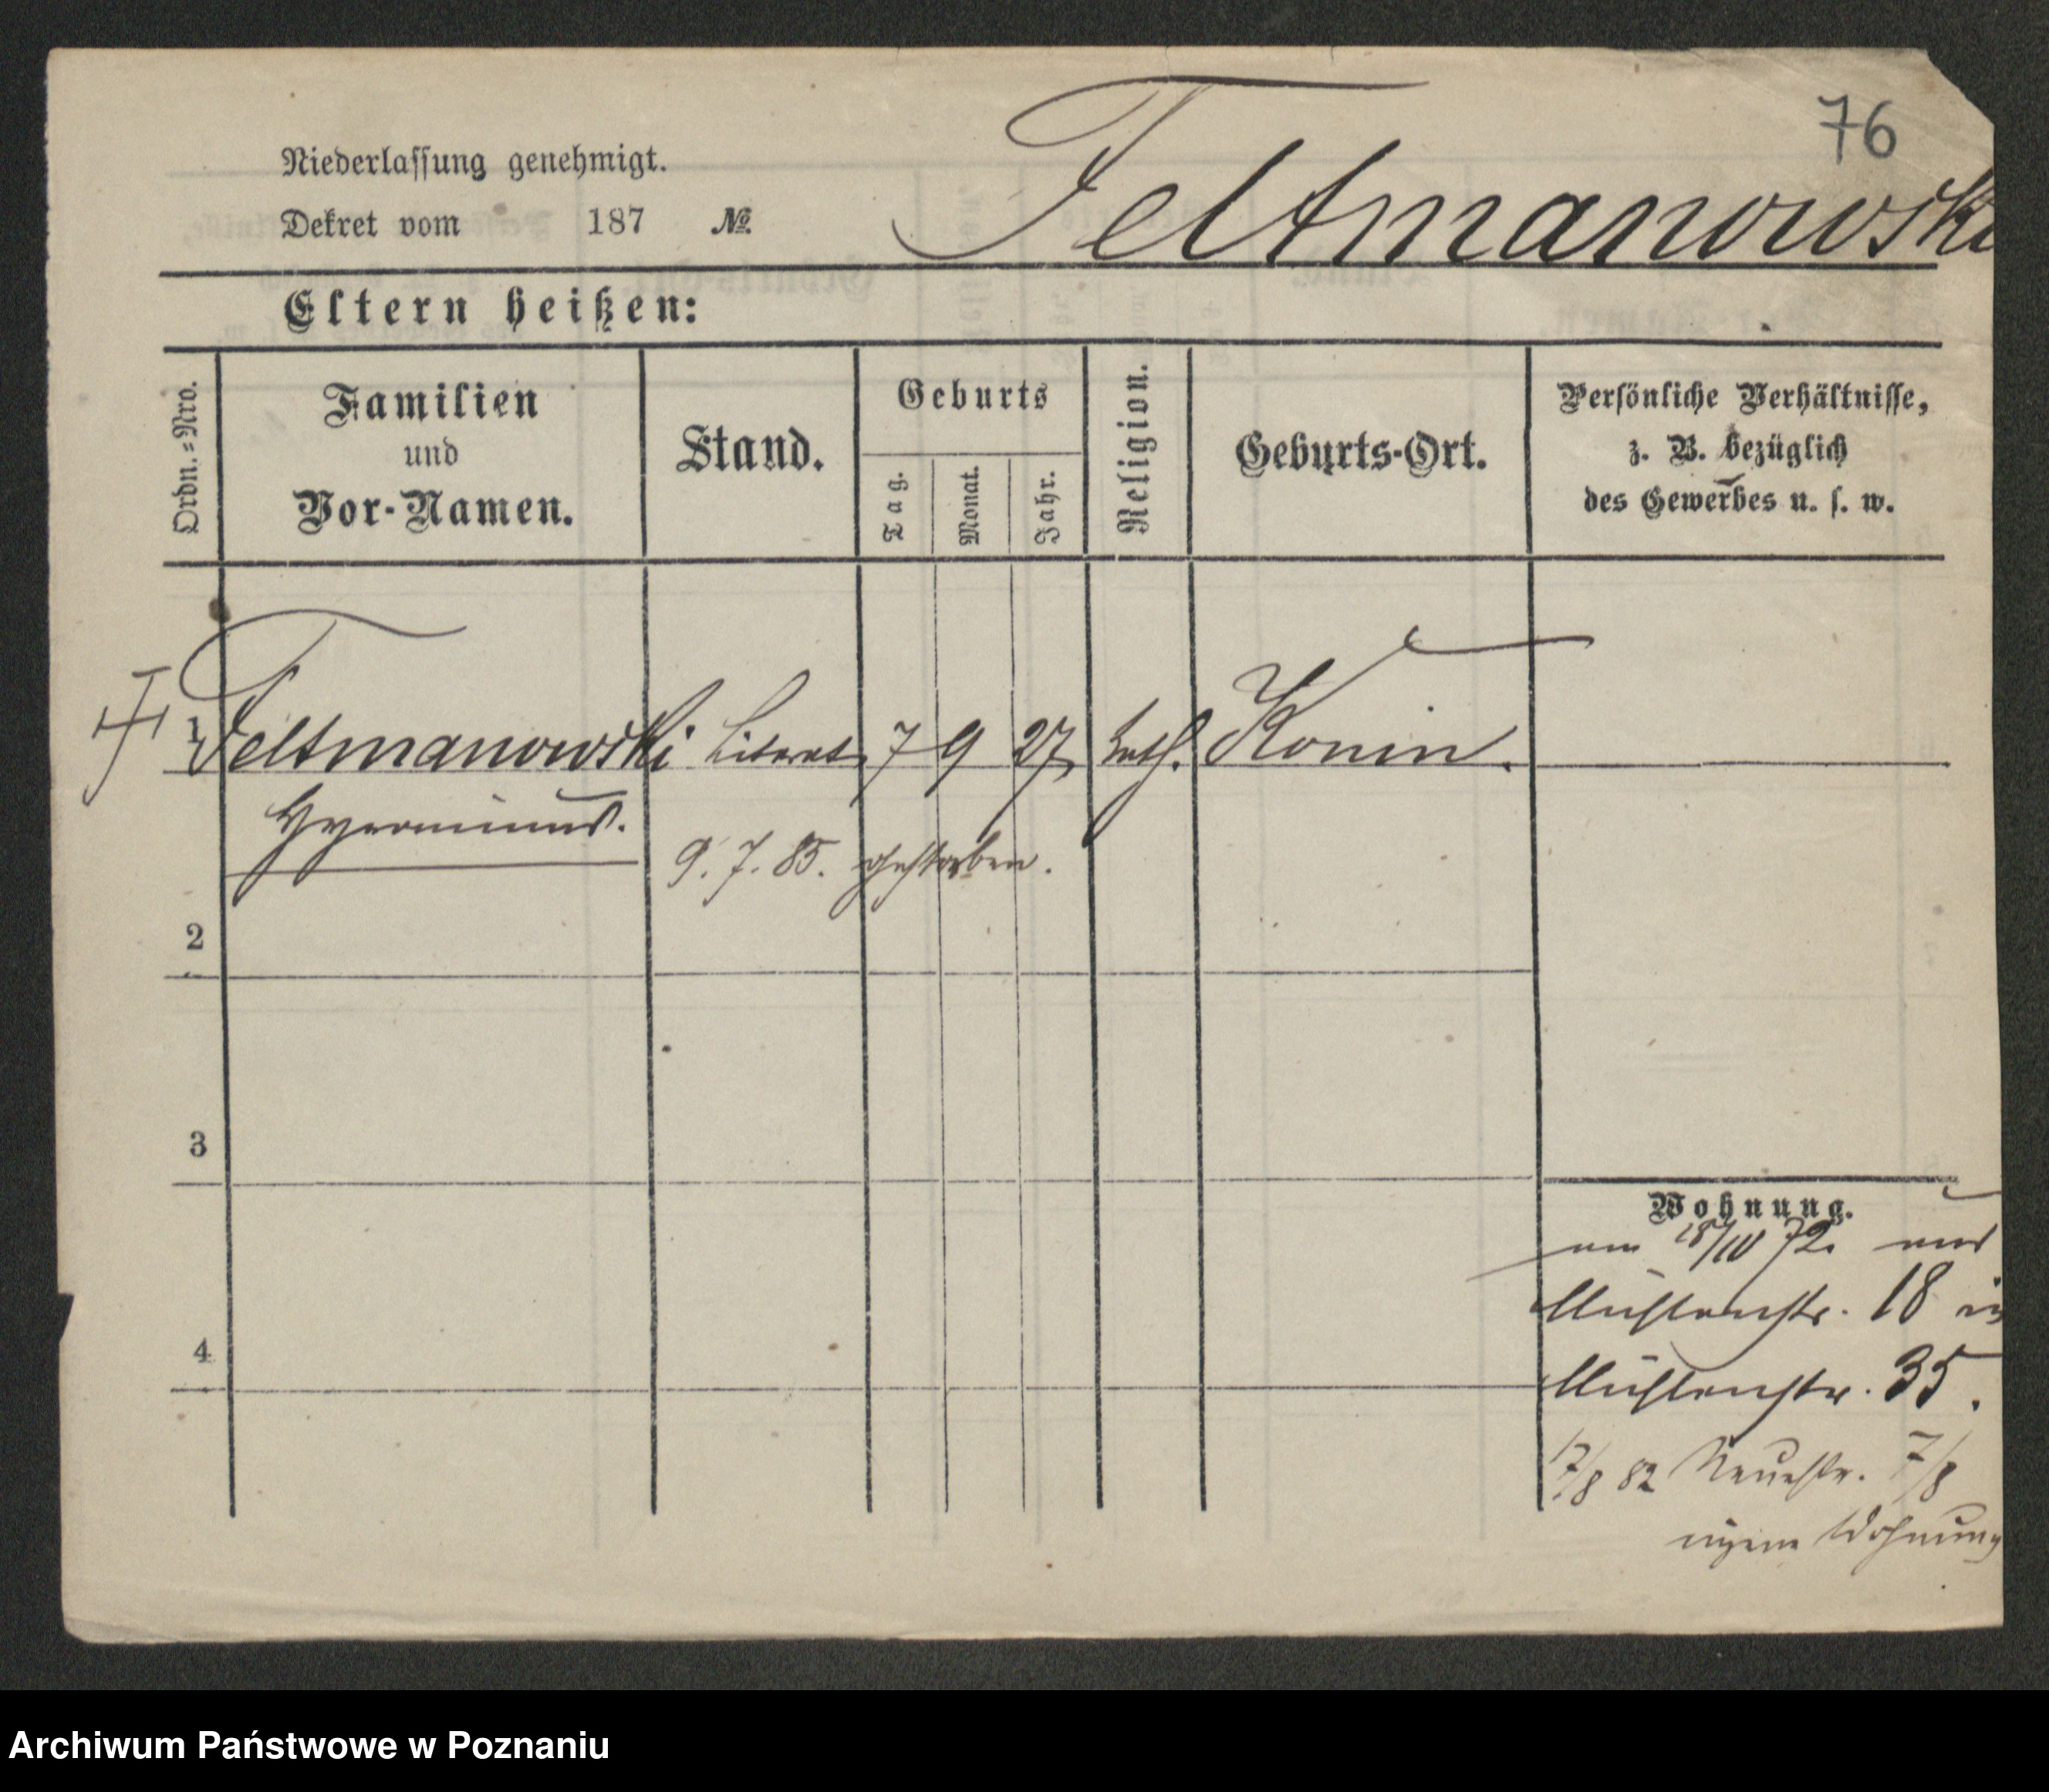 76
Niederlassung genehmigt.
Dekret vom 187 №
Feltmanowski
Eltern heißen:
Ordn.=Nro.
Familien
und
Vor-Namen.
Stand.
Geburts
Tag.
Monat.
Jahr.
Religion.
Geburts-Ort.
Persönliche Verhältnisse,
z. B. bezüglich
des Gewerbes u. s. w.
1 Feltmanowski Literat 7 9 27 kath. Konin.
Hyronimus.
9. 7. 85. gestorben.
2
3
4
Wohnung.
72.
Mühlenstr. 18 in
Mühlenstr. 35.
17/8 82 Neuestr. 7/8
eigene Wohnung
Archiwum Państwowe w Poznaniu